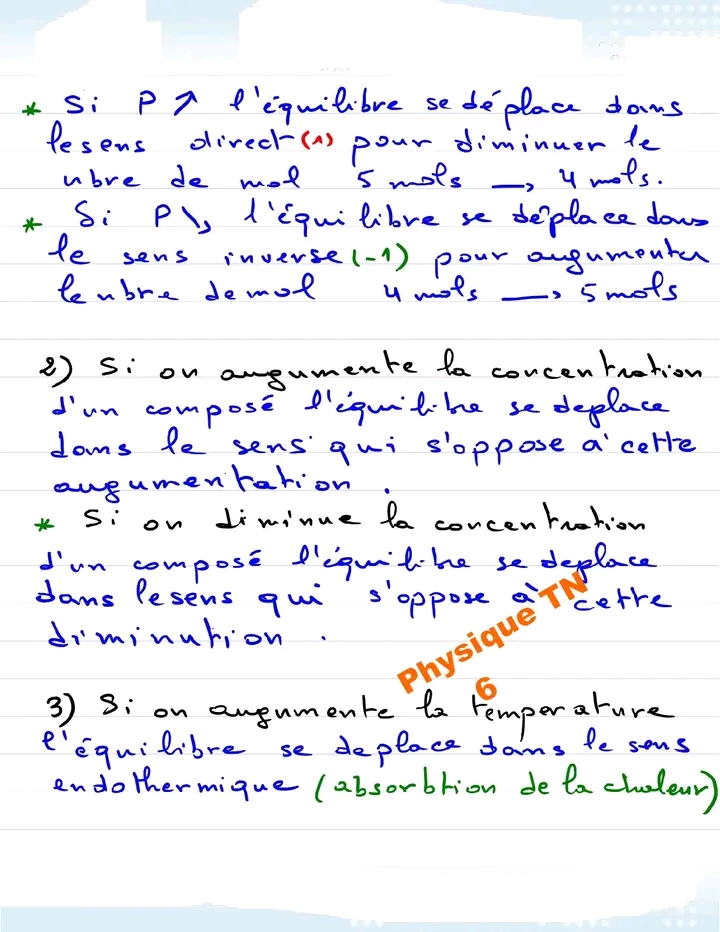 * Si P ↗ l'équilibre se déplace dans
le sens direct (1) pour diminuer le
nbre de mol 5 mols → 4 mols.
* Si P ↘ l'équilibre se déplace dans
le sens inverse (-1) pour augumenter
le nbre de mol 4 mols → 5 mols
2) Si on augumente la concentration
d'un composé l'équilibre se deplace
dans le sens qui s'oppose à cette
augumentation.
* Si on diminue la concentration
d'un composé l'équilibre se deplace
dans le sens qui s'oppose à cette
diminution.
Physique TN
6
3) Si on augumente la temperature
l'équilibre se deplace dans le sens
endothermique (absorbtion de la chaleur)